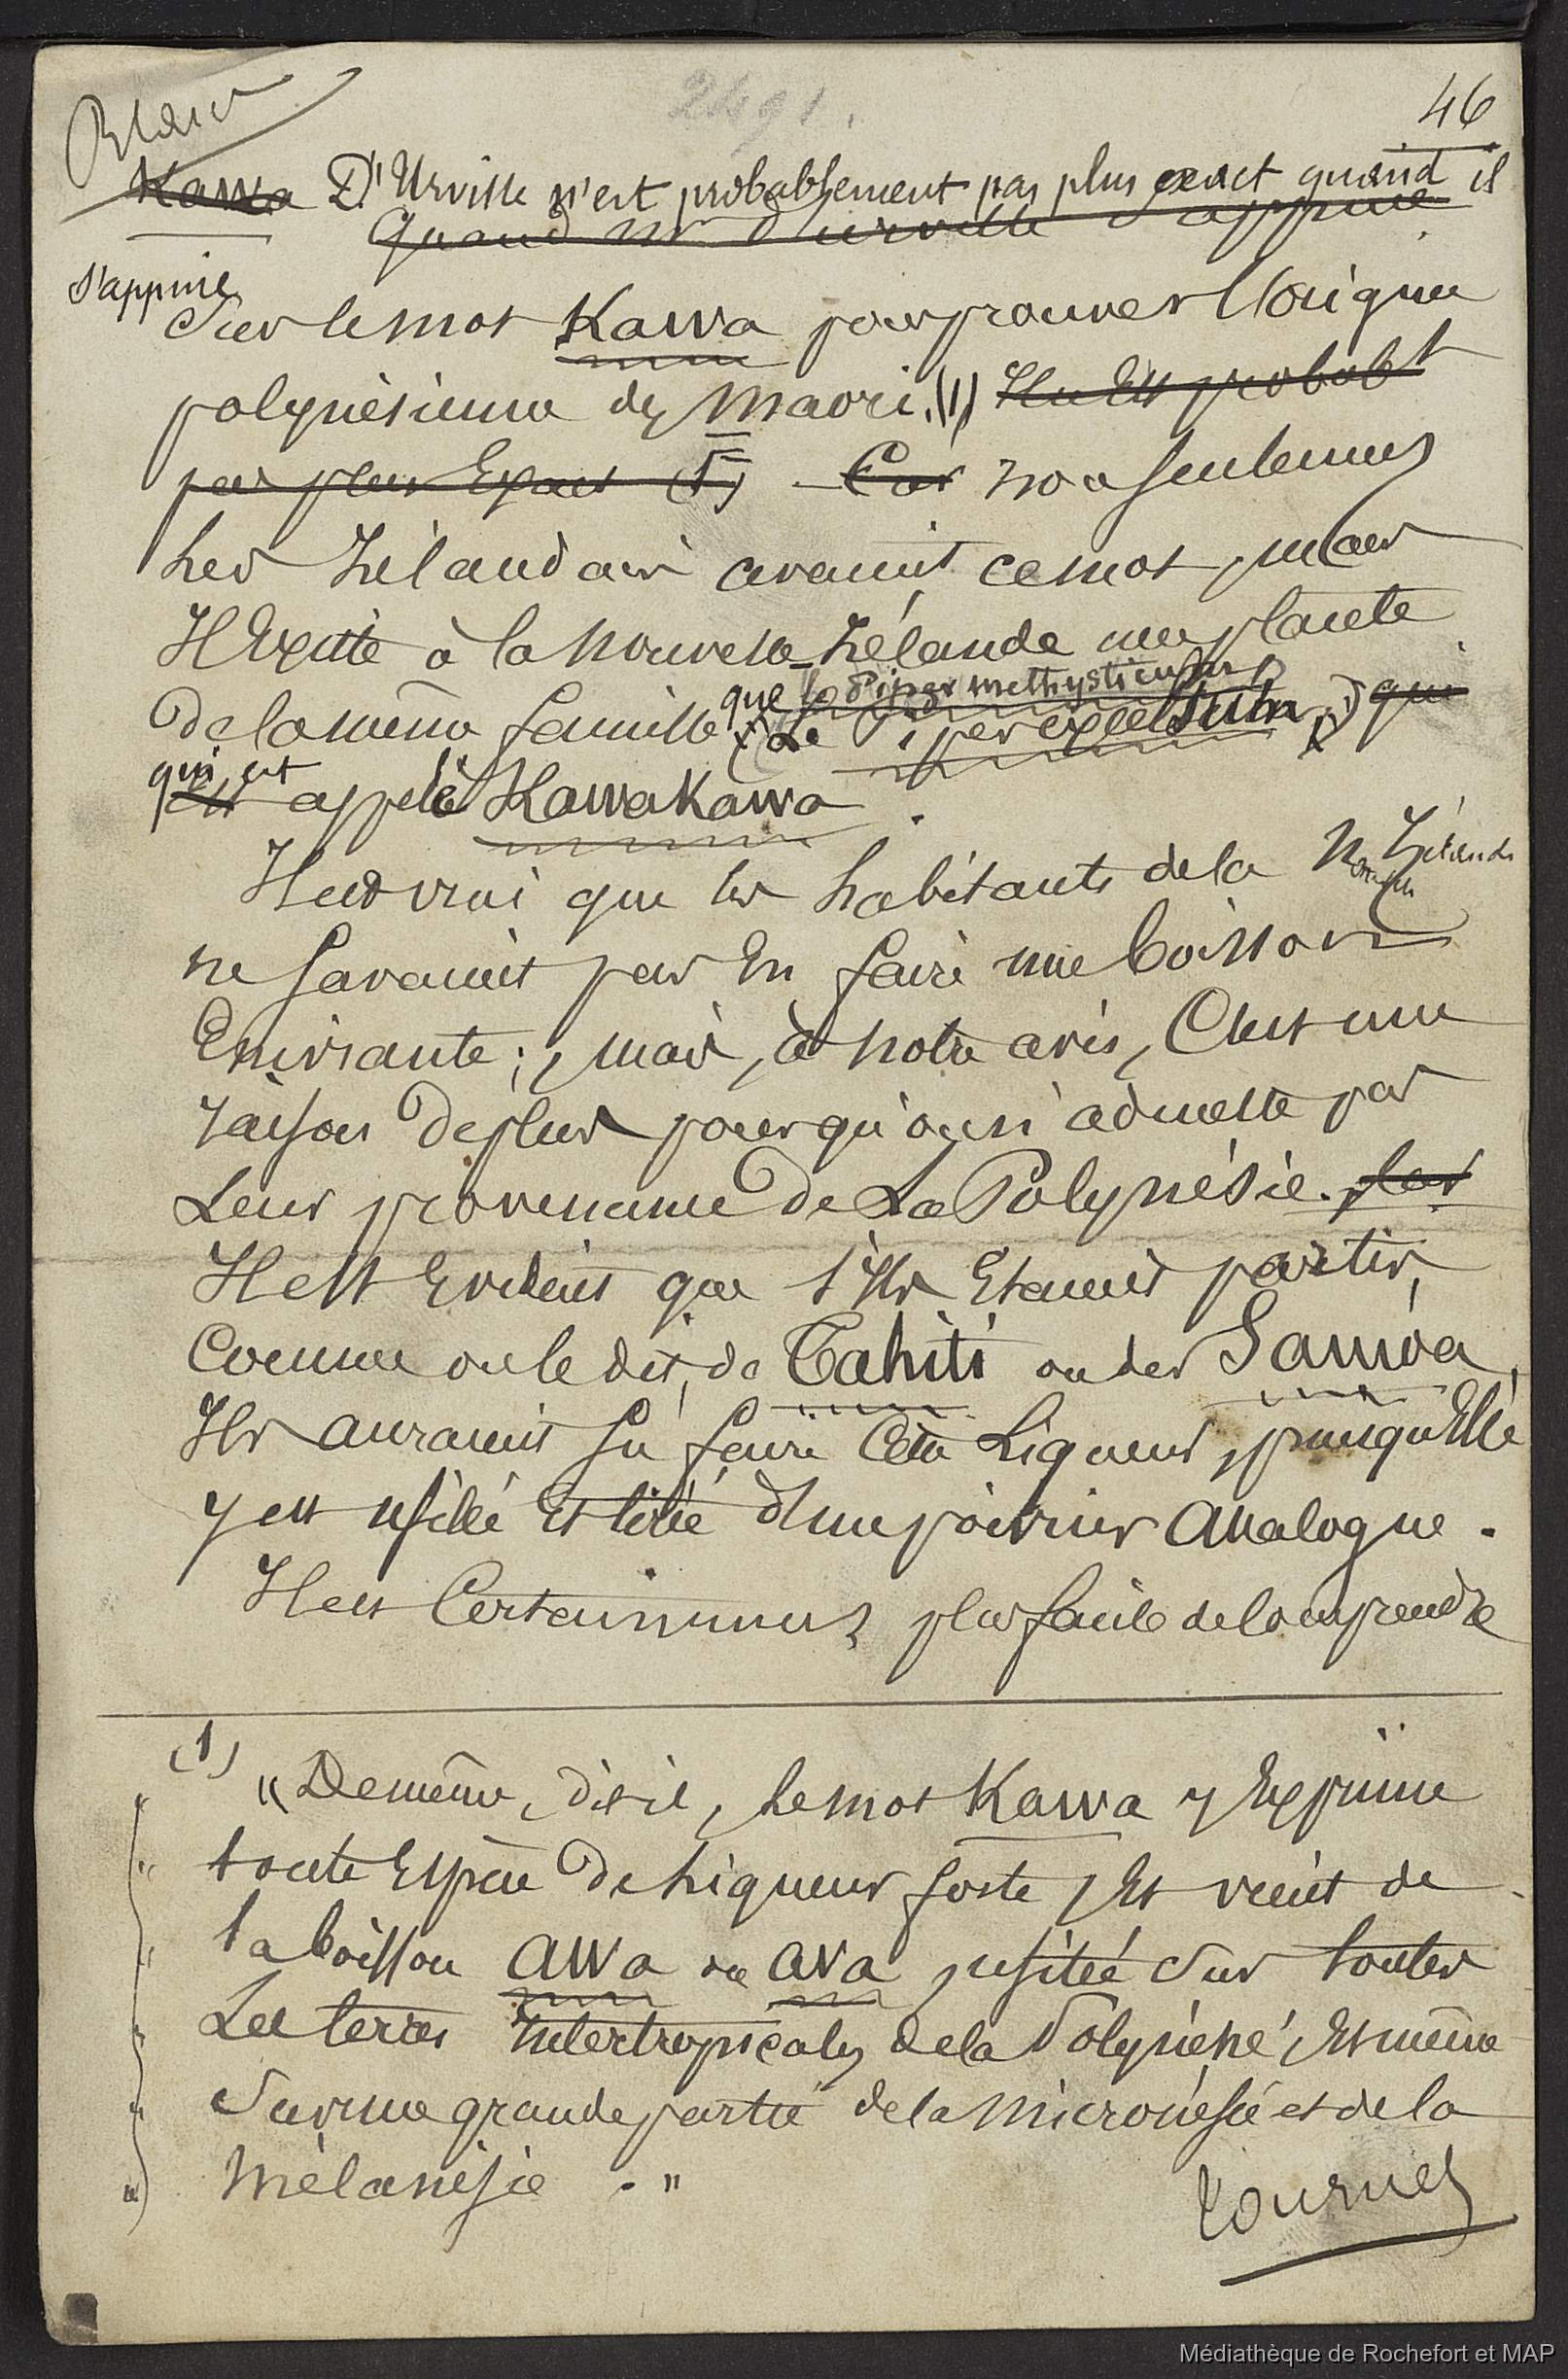 Blanc
2491.
46
Kawa D'Urville n'est probablement pas plus exact quand il
Quand Mr d'urville s'appuie
s'appuie
Sur le mot Kawa pour prouver l'origine
polynésienne des Maori. (1) Il n'est probabt
pas plus Exact (1) Car non seulement
Les Zélandais avaient ce mot, mais
Il Existe à la Nouvelle-Zélande une plante
que le Piper methysticum
De la même famille (Le Piper excelsum) qui
qui est
est appelé Kawakawa.
Il est vrai que les habitants de la Nouvelle Zélande
ne savaient pas En faire une boisson
Enivrante; mais, à notre avis, C'est une
raison De plus pour qu'on n'admette pas
Leur provenance De La Polynésie. car
Il est Evident que s'ils Etaient partis,
Comme on le dit, de Tahiti ou des Samoa,
Ils auraient su faire Cette Liqueur, puisqu'Elle
y est usitée Et tirée d'un poivrier Analogue.
Il est Certainement plus facile de Comprendre
(1) "De même, dit-il, Le mot Kawa y Exprime
toute Espèce De Liqueur forte, Et vient de
la boisson awa ou ava, usitée Sur toutes
Les terres Intertropicales de la Polynésie, Et même
Sur une grande partie de la Micronésie et de la
Mélanésie."
tournez
Médiathèque de Rochefort et MAP